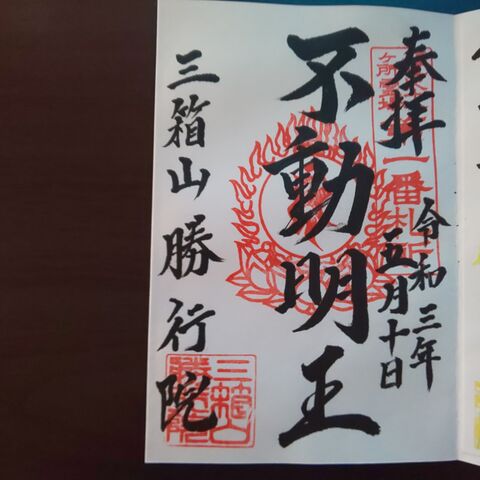 奉拝
一番札所
令和三年
五月十日
不動明王
三箱山勝行院
三箱山
勝行院